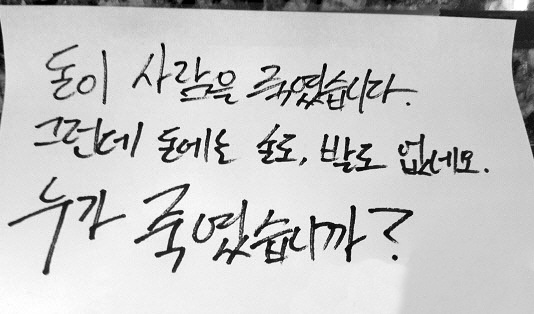 돈이 사람을 죽였습니다.
그런데 돈에는 손도, 발도 없네요.
누가 죽였습니까?